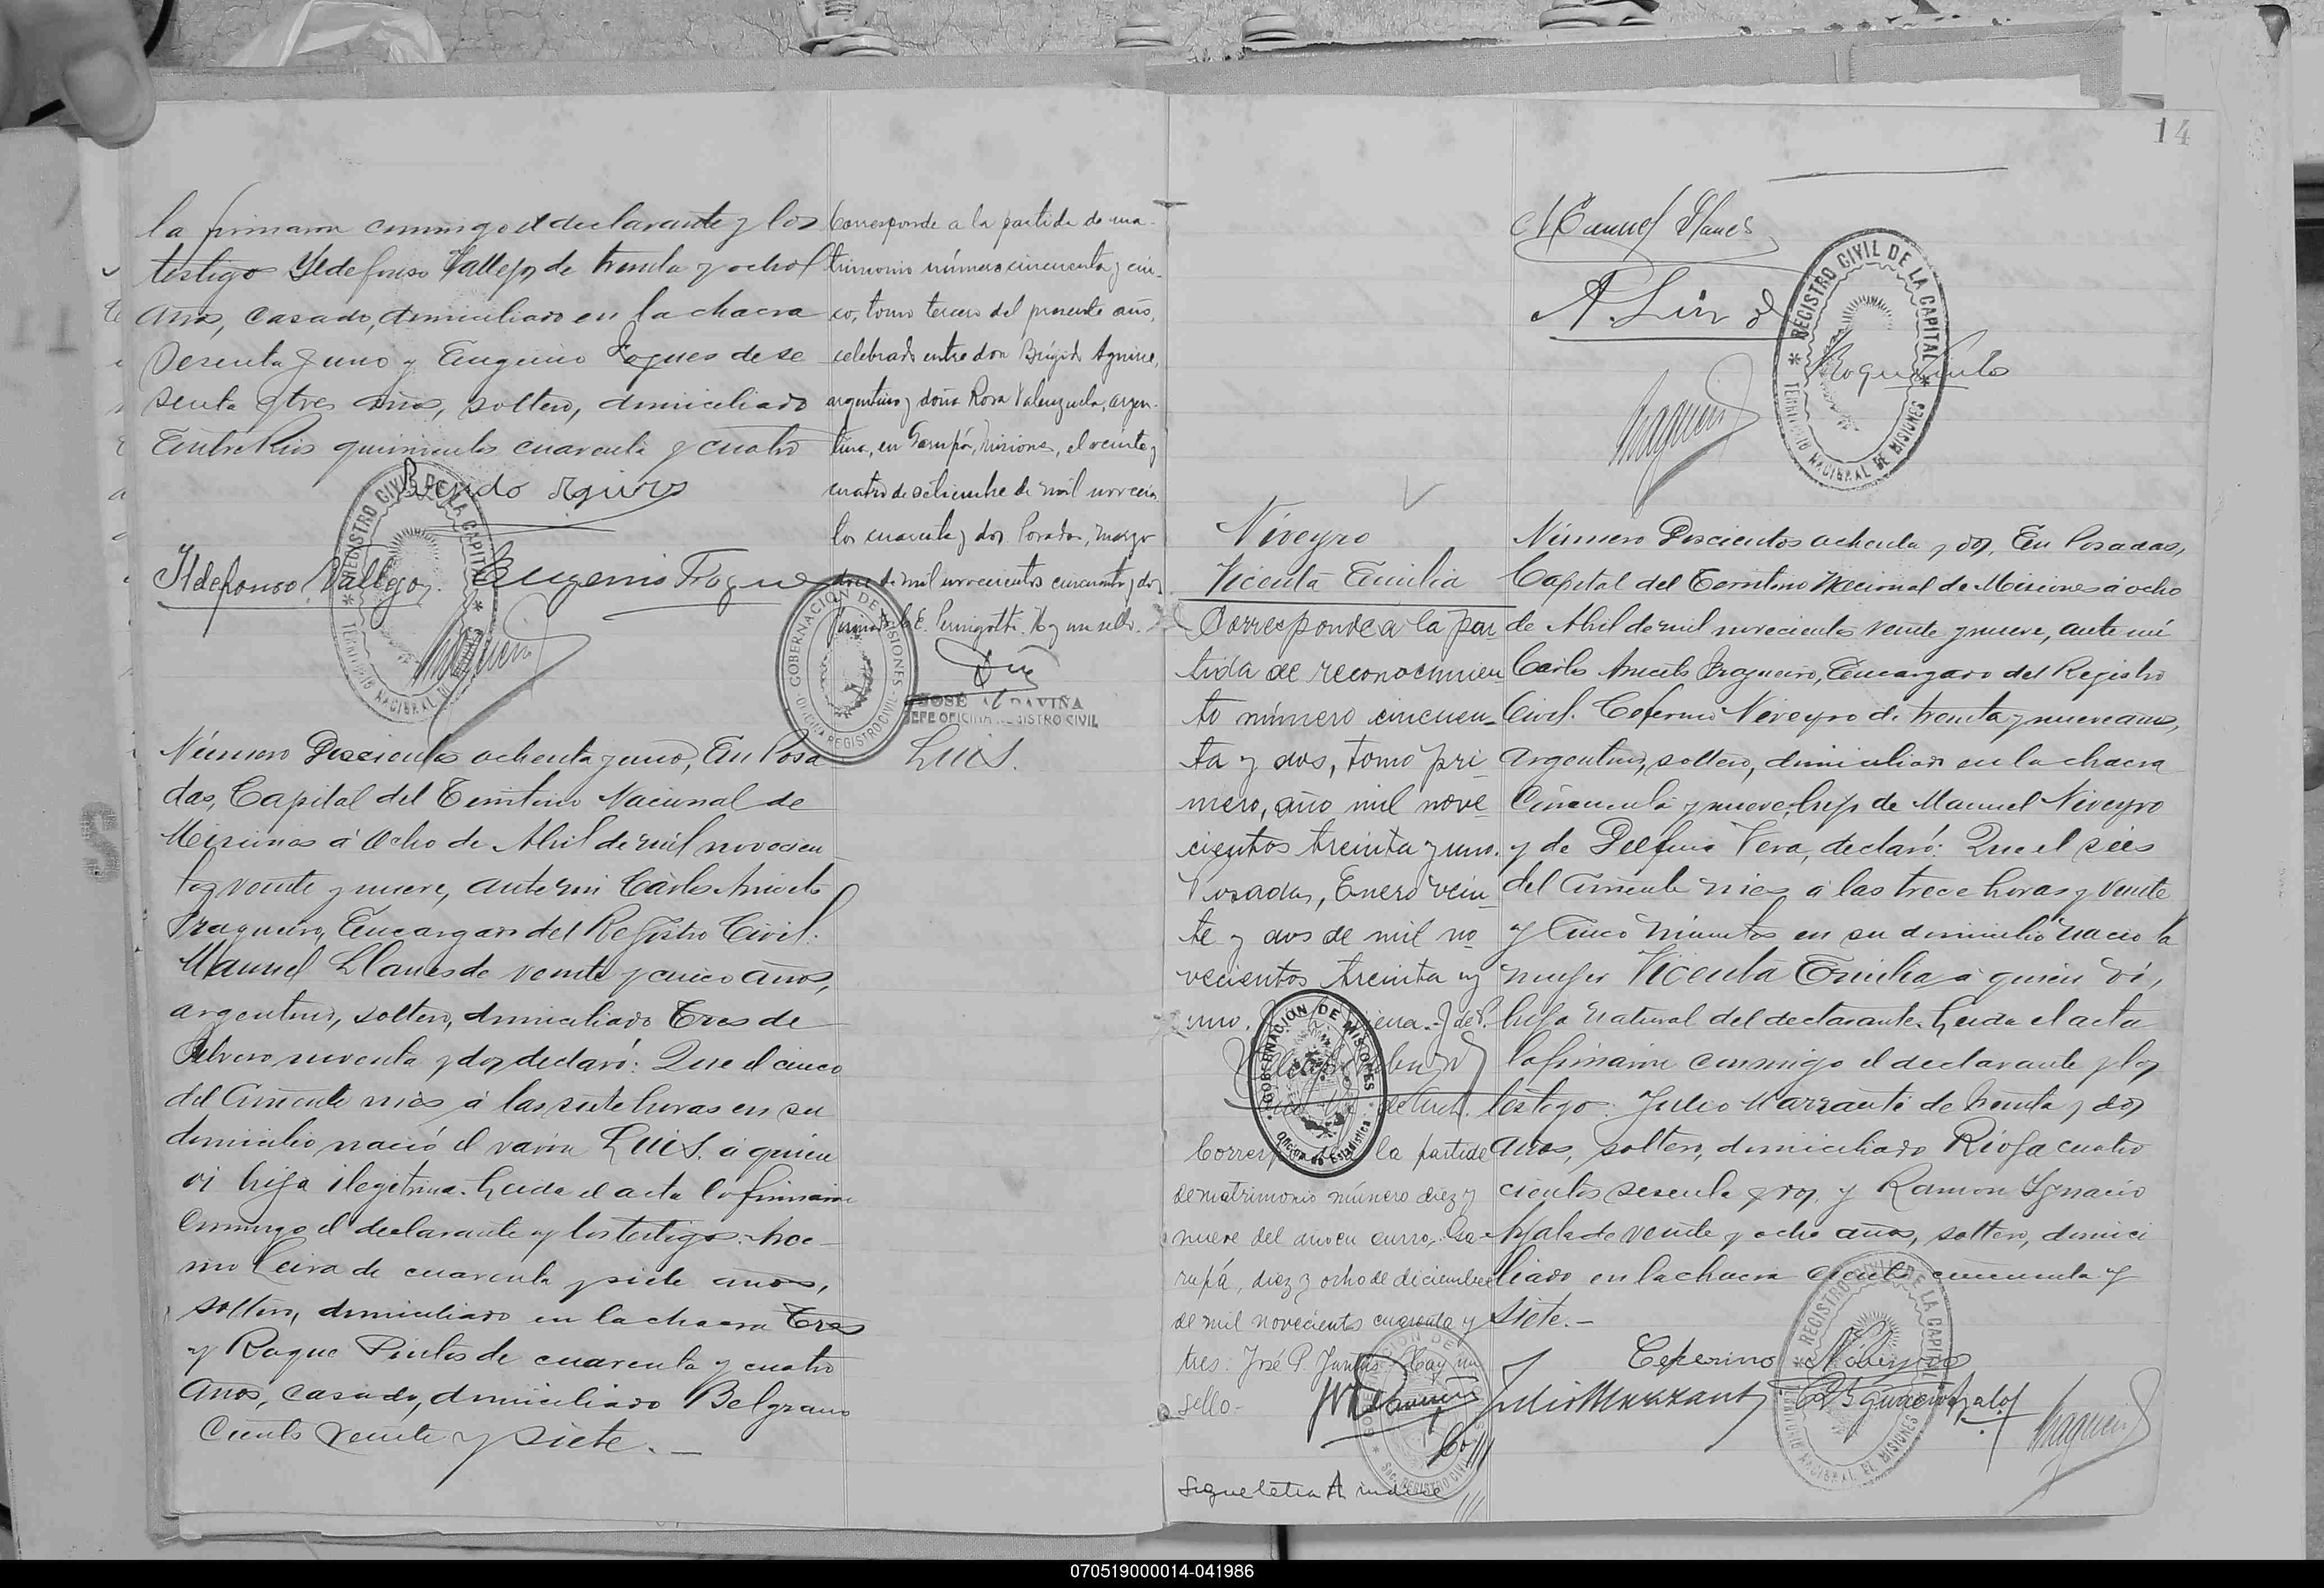 la firmaron conmigo el declarante y los
testigos Ildefonso Vallejos, de treinta y ocho
años, casado, domiciliado en la chacra
sesenta y uno y Eugenio Fogues de se
senta y tres años, soltero, domiciliado
Entre Rios quinientos cuarenta y cuatro
Ildefonso Vallejos. Eugenio
REGISTRO CIVIL DE LA CAPITAL
TERRITORIO NACIONAL DE MISIONES
Corresponde a la partida de ma-
trimonio número cincuenta y cin-
co, tomo tercero del presente año,
celebrado entre don Brígido Aguirre,
argentino y doña Rosa Valenzuela, argen-
tina, en Garupá, Misiones, el veinte y
cuatro de setiembre de mil novecien
tos cuarenta y dos. Posadas, marzo
doce de mil novecientos cincuenta y dos
Hay un sello.
GOBERNACIÓN DE MISIONES
OFICINA REGISTRO CIVIL
JOSÉ
JEFE OFICINA REGISTRO CIVIL
Luis.
Número Doscientos ochenta y uno, En Posa
das, Capital del Territorio Nacional de
Misiones á ocho de Abril de mil novecien
tos veinte y nueve, ante mi Carlos Aniceto
Fragueiro, Encargado del Registro Civil.
Manuel Llanes de veinte y cinco años,
argentino, soltero, domiciliado Tres de
Febrero noventa y dos declaró: Que el cinco
del corriente mes á las siete horas en su
domicilio nació el varón Luis. á quien
vi hijo ilegitimo. Leida el acta la firmaron
conmigo el declarante y los testigos:
Leiva de cuarenta y siete años,
soltero, domiciliado en la chacra Tres
y Roque Pintos de cuarenta y cuatro
años, casado, domiciliado Belgrano
Ciento veinte y siete.—
14
Manuel Llanes
REGISTRO CIVIL DE LA CAPITAL
TERRITORIO NACIONAL DE MISIONES
Niveyro
Vicenta Emilia
Corresponde a la par
tida de reconocimien
to número cincuen-
ta y dos, tomo pri-
mero, año mil nove
cientos treinta y uno.
Posadas, Enero vein-
te y dos de mil no
vecientos treinta y
uno.
GOBERNACIÓN DE MISIONES
Oficina de Estadística
Corresponde a la partida
de matrimonio número diez y
nueve del año en curso, Ga-
rupá, diez y ocho de diciembre
de mil novecientos cuarenta y
tres. José P. Hay un
sello-
Sigue letra A indice
Número Doscientos ochenta y dos, En Posadas,
Capital del Territorio Nacional de Misiones á ocho
de Abril de mil novecientos veinte y nueve, ante mi
Carlos Aniceto Fragueiro, Encargado del Registro
Civil. Ceferino Niveyro de treinta y nueve años,
argentino, soltero, domiciliado en la chacra
Cincuenta y nueve, hijo de Manuel Niveyro
y de Delfina Vera, declaró: Que el seis
del corriente mes á las trece horas y veinte
y cinco minutos en su domicilio nació la
mujer Vicenta Emilia á quien vi,
hija natural del declarante. Leida el acta
la firmaron conmigo el declarante y los
testigos: Julio Marzante de treinta y dos
años, soltero, domiciliado Rioja cuatro
cientos sesenta y dos, y Ramon Ignacio
Ayala de veinte y ocho años, soltero, domici
liado en la chacra ciento cincuenta y
siete.—
Ceferino Niveyro
REGISTRO CIVIL DE LA CAPITAL
TERRITORIO NACIONAL DE MISIONES
070519000014-041986